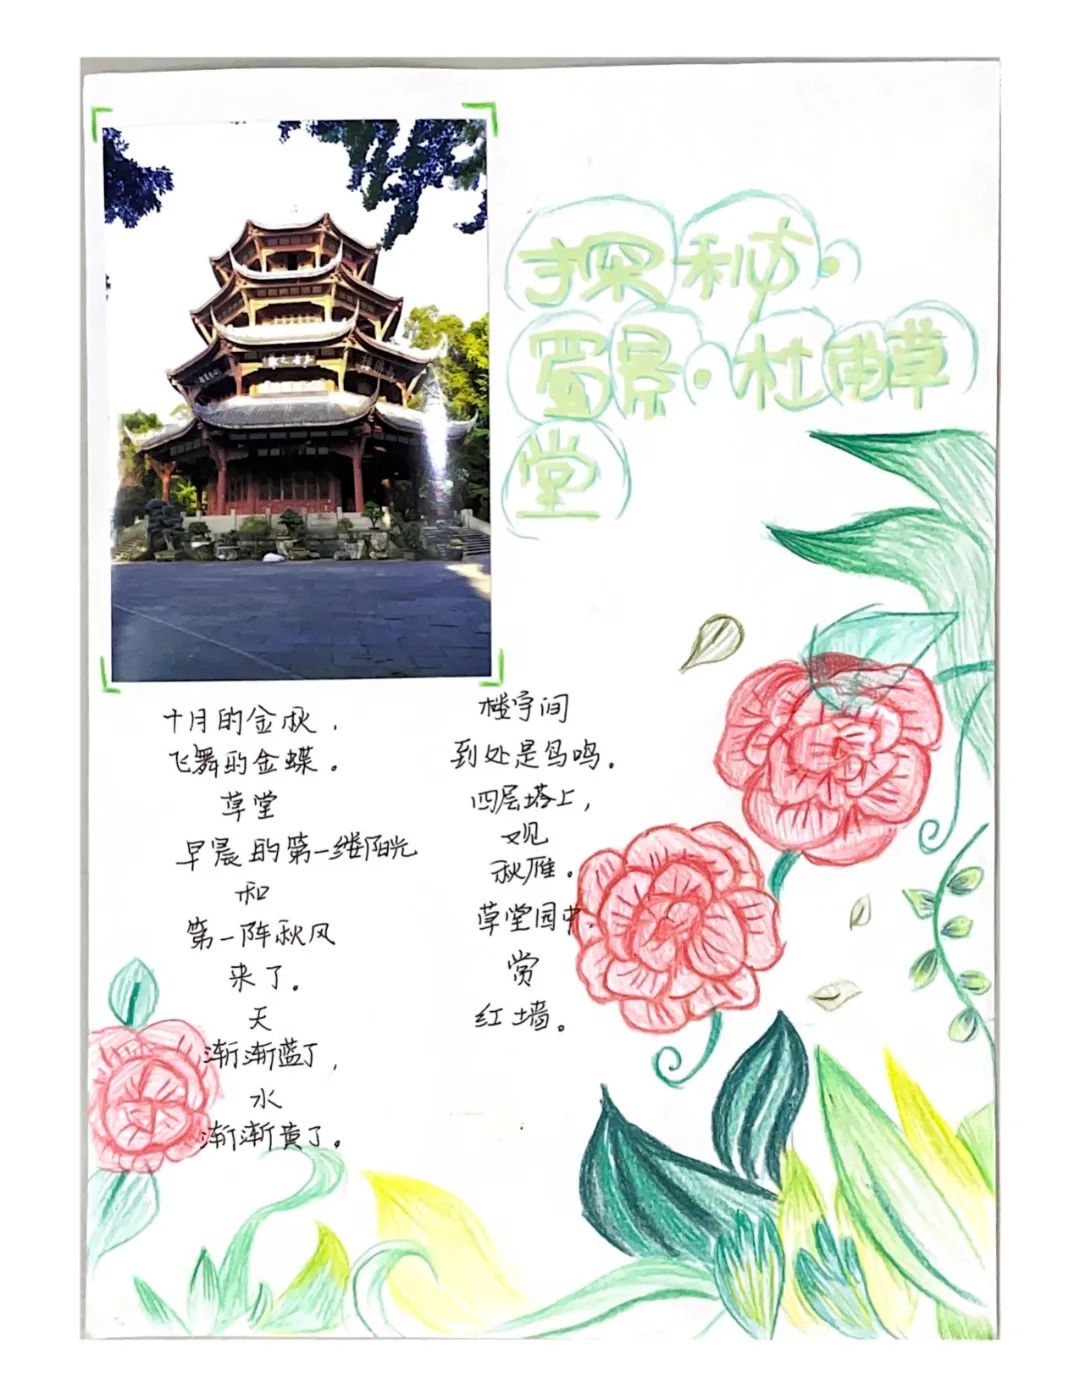 探秘·
蜀景·杜甫草
堂
十月的金秋，
飞舞的金蝶。
草堂
早晨的第一缕阳光
和
第一阵秋风
来了。
天
渐渐蓝了，
水
渐渐黄了。
楼宇间
到处是鸟鸣。
四层塔上，
观
秋雁。
草堂园中，
赏
红墙。